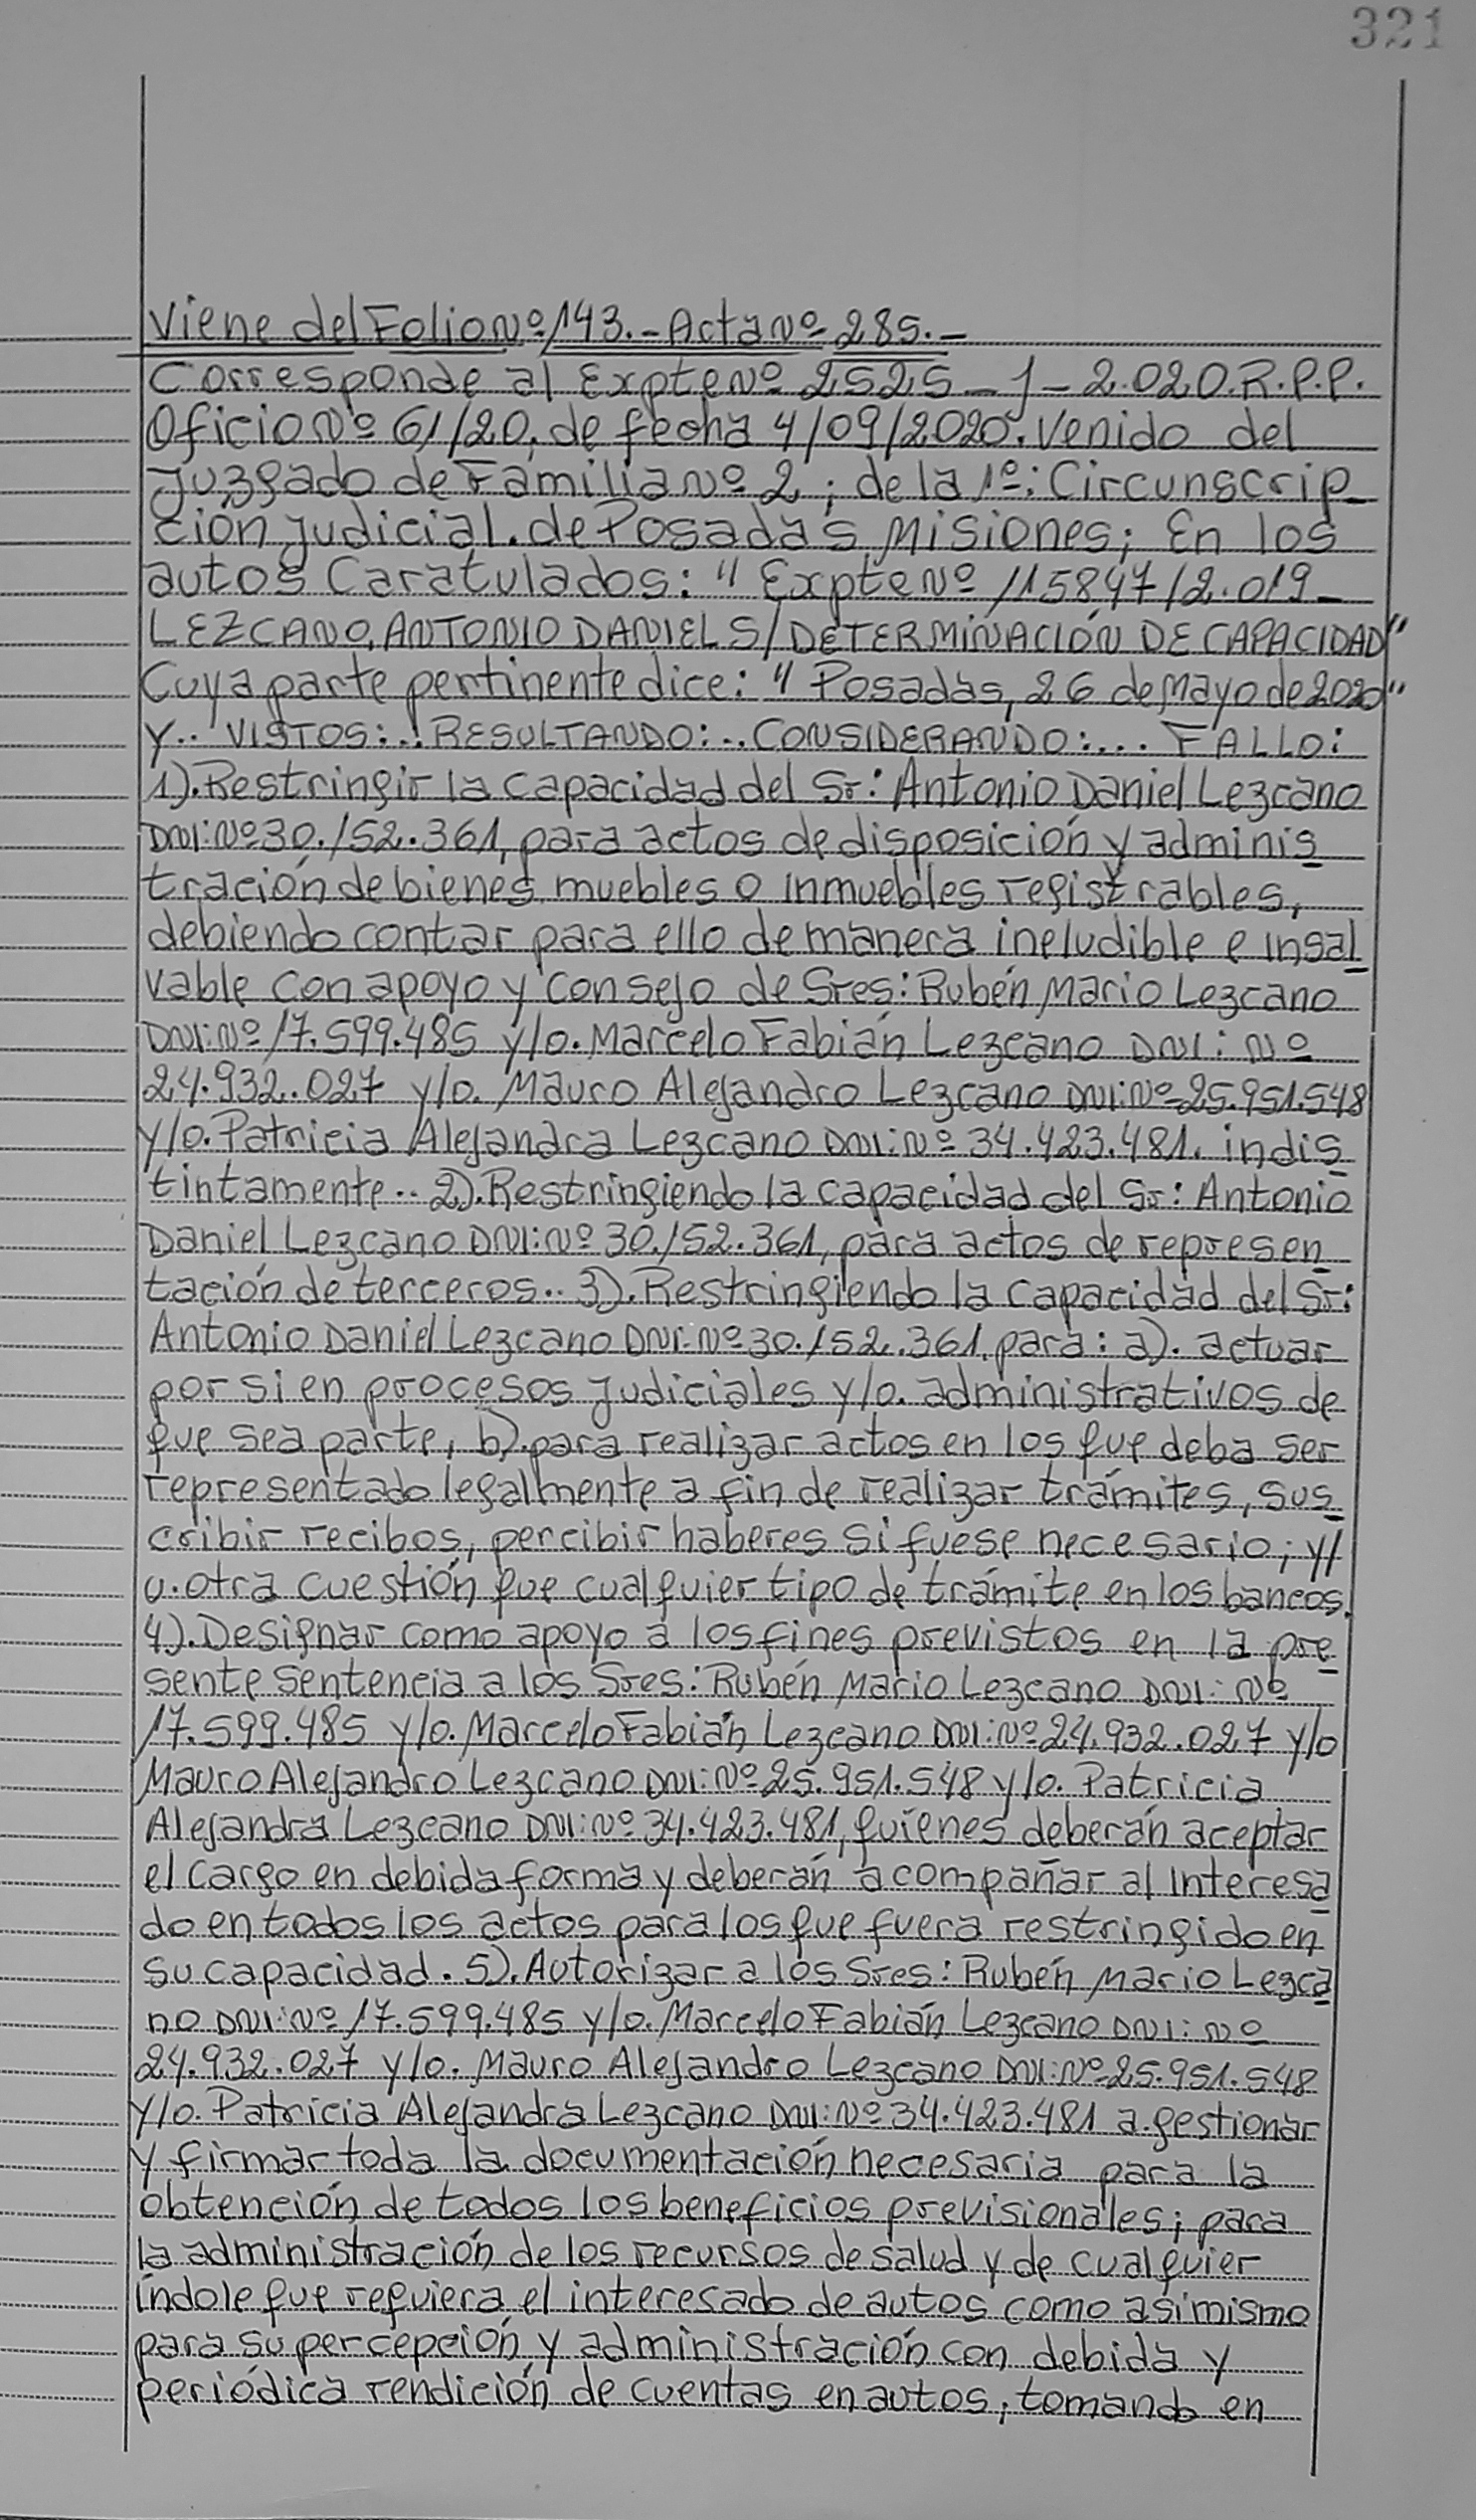 321
Viene del Folio Nº 143.- Acta Nº 285.-
Corresponde al Expte Nº 2525-J-2.020.R.P.P.
Oficio Nº 61/20, de fecha 4/09/2020. Venido del
Juzgado de Familia Nº 2; de la 1º: Circunscrip
ción Judicial. de Posadas, Misiones; En los
autos Caratulados: "Expte Nº 115847/2.019-
LEZCANO, ANTONIO DANIEL S/DETERMINACIÓN DE CAPACIDAD"
Cuya parte pertinente dice: "Posadas, 26 de Mayo de 2020"
Y.. VISTOS:.. RESULTANDO:.. CONSIDERANDO:.... FALLO:
1). Restringir la capacidad del Sr: Antonio Daniel Lezcano
DNI: Nº 30.152.361, para actos de disposición y adminis
tración de bienes muebles o inmuebles registrables,
debiendo contar para ello de manera ineludible e insal
vable con apoyo y consejo de Sres: Rubén Mario Lezcano
DNI: Nº 17.599.485 y/o. Marcelo Fabián Lezcano DNI: Nº
24.932.027 y/o. Mauro Alejandro Lezcano DNI: Nº 25.951.548
y/o. Patricia Alejandra Lezcano DNI: Nº 34.423.481. indis
tintamente.. 2). Restringiendo la capacidad del Sr: Antonio
Daniel Lezcano DNI: Nº 30.152.361, para actos de represen
tación de terceros.. 3). Restringiendo la capacidad del Sr:
Antonio Daniel Lezcano DNI: Nº 30.152.361, para: a). actuar
por si en procesos judiciales y/o. administrativos de
que sea parte, b). para realizar actos en los que deba ser
representado legalmente a fin de realizar trámites, sus
cribir recibos, percibir haberes si fuese necesario; y/
u. otra cuestión que cualquier tipo de trámite en los bancos.
4). Designar como apoyo a los fines previstos en la pre
sente sentencia a los Sres: Rubén Mario Lezcano DNI: Nº
17.599.485 y/o. Marcelo Fabián Lezcano DNI: Nº 24.932.027 y/o
Mauro Alejandro Lezcano DNI: Nº 25.951.548 y/o. Patricia
Alejandra Lezcano DNI: Nº 34.423.481, quienes deberán aceptar
el cargo en debida forma y deberán acompañar al interesa
do en todos los actos para los que fuera restringido en
su capacidad. 5). Autorizar a los Sres: Rubén Mario Lezca
no DNI: Nº 17.599.485 y/o. Marcelo Fabián Lezcano DNI: Nº
24.932.027 y/o. Mauro Alejandro Lezcano DNI: Nº 25.951.548
y/o. Patricia Alejandra Lezcano DNI: Nº 34.423.481 a gestionar
y firmar toda la documentación necesaria para la
obtención de todos los beneficios previsionales; para
la administración de los recursos de salud y de cualquier
índole que requiera el interesado de autos como asimismo
para su percepción y administración con debida y
periódica rendición de cuentas en autos, tomando en